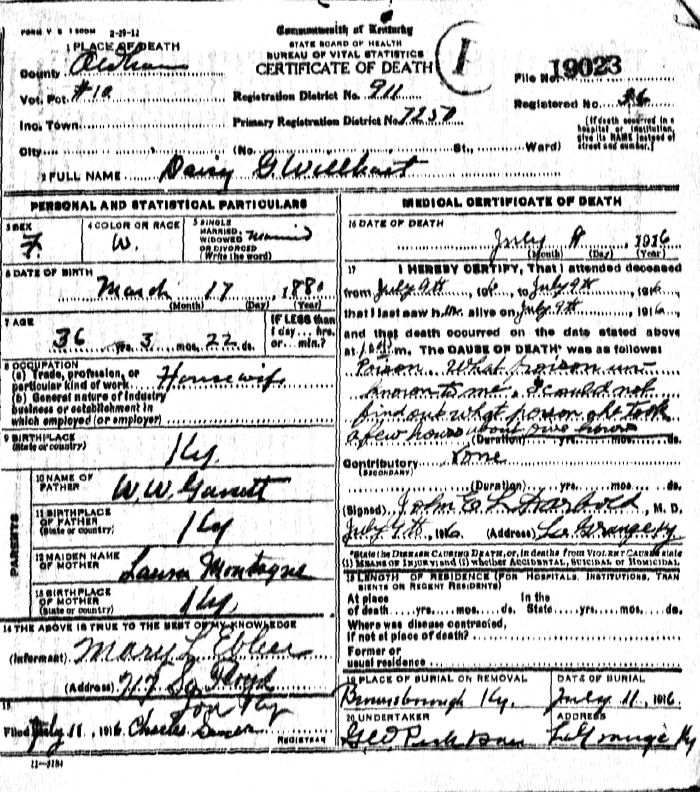 FORM V S 1 500M 2-29-12
Commonwealth of Kentucky
STATE BOARD OF HEALTH
BUREAU OF VITAL STATISTICS
CERTIFICATE OF DEATH
1
File No. 19023
Registered No. 36
(If death occurred in a hospital or institution, give its NAME instead of street and number.)
1 PLACE OF DEATH
County Oldham
Vot. Pct. #10
Registration District No. 911
Inc. Town
Primary Registration District No. 7250
City (No. St., Ward)
2 FULL NAME Daisy G. Willhart
PERSONAL AND STATISTICAL PARTICULARS
3 SEX F.
4 COLOR OR RACE W.
5 SINGLE MARRIED, WIDOWED OR DIVORCED (Write the word) Married
6 DATE OF BIRTH
March 17, 1880
(Month) (Day) (Year)
7 AGE
36 yrs. 3 mos. 22 ds.
IF LESS than 1 day... hrs. or... min.?
8 OCCUPATION
(a) Trade, profession, or particular kind of work Housewife
(b) General nature of industry business or establishment in which employed (or employer)
9 BIRTHPLACE (State or country)
Ky.
PARENTS
10 NAME OF FATHER W. W. Garrett
11 BIRTHPLACE OF FATHER (State or country) Ky
12 MAIDEN NAME OF MOTHER Laura Montague
13 BIRTHPLACE OF MOTHER (State or country) Ky.
14 THE ABOVE IS TRUE TO THE BEST OF MY KNOWLEDGE
(Informant) Mary L
(Address) 717 So Floyd
Lou Ky
15
Filed July 11, 1916 Charles
REGISTRAR
11-3184
MEDICAL CERTIFICATE OF DEATH
16 DATE OF DEATH
July 9, 1916
(Month) (Day) (Year)
17 I HEREBY CERTIFY, That I attended deceased
from July 9th 1916, to July 9th 1916
that I last saw her alive on July 9th, 1916
and that death occurred on the date stated above
at m. The CAUSE OF DEATH* was as follows:
Poison. What poison un-
known to me, I could not
find out what poison she took
a few hours about five hours
(Duration) yrs. mos. ds.
Contributory None
(SECONDARY)
(Duration) yrs. mos. ds.
(Signed) John E L Harbold, M. D.
July 9th, 1916 (Address) La Grange Ky
*State the DISEASE CAUSING DEATH, or, in deaths from VIOLENT CAUSES state (1) MEANS OF INJURY; and (2) whether ACCIDENTAL, SUICIDAL or HOMICIDAL
18 LENGTH OF RESIDENCE (FOR HOSPITALS, INSTITUTIONS, TRANSIENTS OR RECENT RESIDENTS)
At place of death yrs. mos. ds. In the State yrs. mos. ds.
Where was disease contracted, if not at place of death?
Former or usual residence
19 PLACE OF BURIAL OR REMOVAL DATE OF BURIAL
Brownsborough Ky. July 11, 1916
20 UNDERTAKER ADDRESS
Geo Peak LaGrange Ky